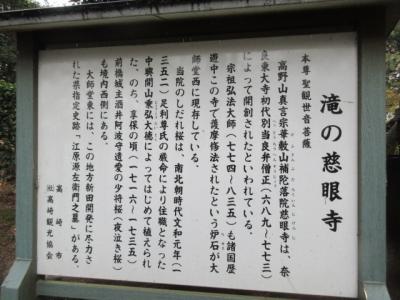 滝の慈眼寺
本尊 聖観世音菩薩
高野山真言宗華敷山補陀落院慈眼寺は、奈
良東大寺初代別当良弁僧正(六八九〜七七三)
によって開創されたといわれている。
宗祖弘法大師(七七四〜八三五)も諸国歴
遊中この寺で護摩修法されたという炉石が大
師堂西に現存している。
当院のしだれ桜は、南北朝時代文和元年(一
三五二)足利尊氏の厳命により住職となった
中興開山乗弘大徳によってはじめて植えられ
た。のち、享保の頃(一七一六〜一七三五)
前橋城主酒井阿波守遺愛の少将桜(夜泣き桜)
も境内西側にある。
大師堂東には、この地方新田開発に尽力さ
れた県指定史跡「江原源左衛門之墓」がある。
高崎市
㈳高崎観光協会